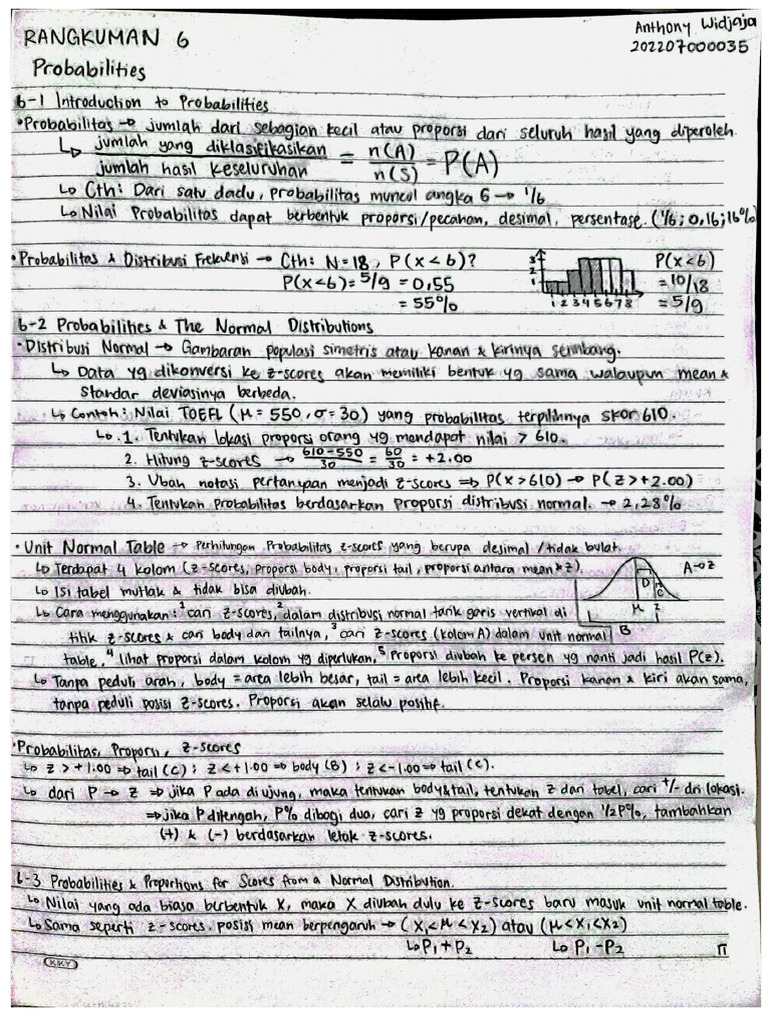 RANGKUMAN 6
Anthony Widjaja
202207000035
Probabilities
6-1 Introduction to Probabilities
• Probabilitas → jumlah dari sebagian kecil atau proporsi dari seluruh hasil yang diperoleh.
↳ jumlah yang diklasifikasikan / jumlah hasil keseluruhan = n(A) / n(S) = P(A)
↳ Cth: Dari satu dadu, probabilitas muncul angka 6 → 1/6
↳ Nilai Probabilitas dapat berbentuk proporsi/pecahan, desimal, persentase. (1/6; 0,16; 16%)
• Probabilitas & Distribusi Frekuensi → Cth: N=18, P(x<6)?
P(x<6) = 5/9 = 0,55
= 55%
3
2
1
1 2 3 4 5 6 7 8
P(x<6)
= 10/18
= 5/9
6-2 Probabilities & The Normal Distributions
• Distribusi Normal → Gambaran populasi simetris atau kanan & kirinya seimbang.
↳ Data yg dikonversi ke z-scores akan memiliki bentuk yg sama walaupun mean &
standar deviasinya berbeda.
↳ Contoh: Nilai TOEFL (μ = 550, σ = 30) yang probabilitas terpilihnya skor 610.
↳ 1. Tentukan lokasi proporsi orang yg mendapat nilai > 610.
2. Hitung z-scores → 610-550 / 30 = 60 / 30 = +2.00
3. Ubah notasi pertanyaan menjadi z-scores ⇒ P(x>610) → P(z>+2.00)
4. Tentukan probabilitas berdasarkan proporsi distribusi normal. → 2,28%
• Unit Normal Table → Perhitungan Probabilitas z-scores yang berupa desimal/tidak bulat.
↳ Terdapat 4 kolom (z-scores, proporsi body, proporsi tail, proporsi antara mean & z).
↳ Isi tabel mutlak & tidak bisa diubah.
↳ Cara menggunakan: ¹cari z-scores, ²dalam distribusi normal tarik garis vertikal di
titik z-scores & cari body dan tailnya, ³cari z-scores (kolom A) dalam unit normal
table, ⁴lihat proporsi dalam kolom yg diperlukan, ⁵Proporsi diubah ke persen yg nanti jadi hasil P(z).
A→z
D
C
μ
z
B
↳ Tanpa peduli arah, body = area lebih besar, tail = area lebih kecil. Proporsi kanan & kiri akan sama,
tanpa peduli posisi z-scores. Proporsi akan selalu positif.
• Probabilitas, Proporsi, z-scores
↳ z > +1.00 ⇒ tail (C) ; z < +1.00 ⇒ body (B) ; z < -1.00 ⇒ tail (C).
↳ dari P → z ⇒ jika P ada di ujung, maka tentukan body & tail, tentukan z dari tabel, cari +/- dri lokasi.
⇒ jika P ditengah, P% dibagi dua, cari z yg proporsi dekat dengan 1/2P%, tambahkan
(+) & (-) berdasarkan letak z-scores.
6-3 Probabilities & Proportions for Scores from a Normal Distribution.
↳ Nilai yang ada biasa berbentuk X, maka X diubah dulu ke z-scores baru masuk unit normal table.
↳ Sama seperti z-scores. posisi mean berpengaruh → (X₁<μ<X₂) atau (μ<X₁<X₂)
↳ P₁+P₂ ↳ P₁-P₂
KKY